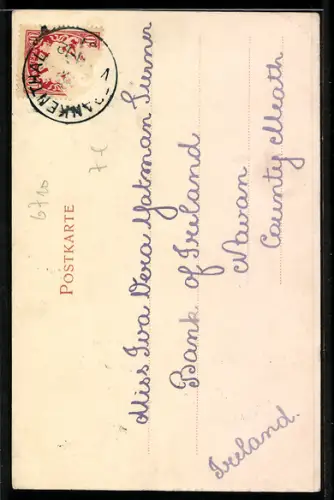 FRANKENTHAL
POSTKARTE
Miss Iva Vera Yatman Turner
Bank of Ireland
Navan
County Meath
Ireland.
6710
7€